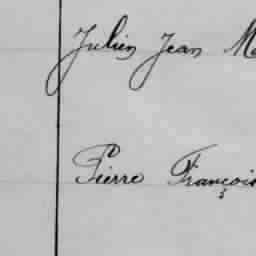 Julien Jean
Pierre François